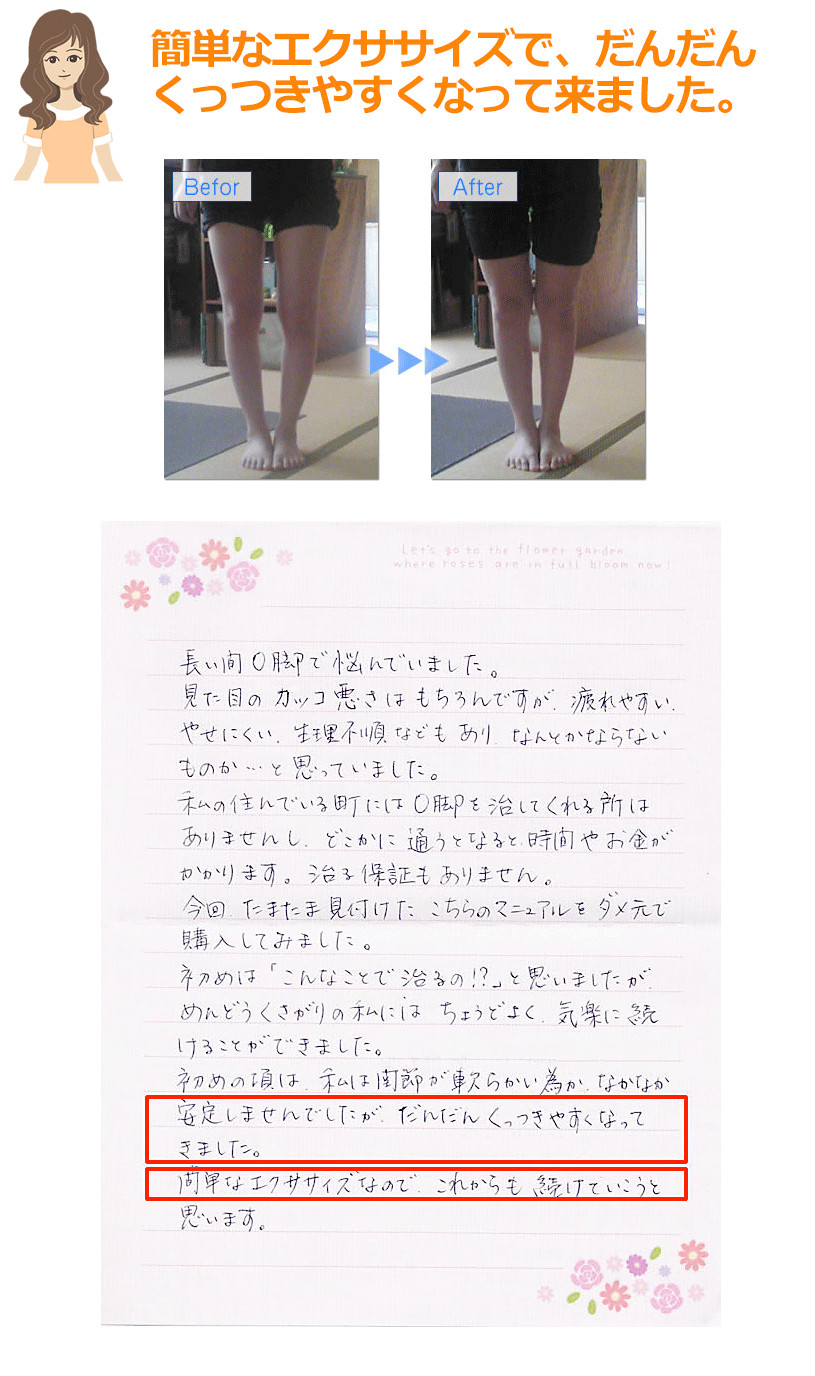 簡単なエクササイズで、だんだん
くっつきやすくなって来ました。
Befor
After
Let's go to the flower garden
where roses are in full bloom now!
長い間O脚で悩んでいました。
見た目のカッコ悪さはもちろんですが、疲れやすい、
やせにくい、生理不順などもあり、なんとかならない
ものか…と思っていました。
私の住んでいる町にはO脚を治してくれる所は
ありませんし、どこかに通うとなると、時間やお金が
かかります。治る保証もありません。
今回、たまたま見付けたこちらのマニュアルをダメ元で
購入してみました。
初めは「こんなことで治るの!?」と思いましたが、
めんどうくさがりの私にはちょうどよく、気楽に続
けることができました。
初めの頃は、私は関節が軟らかい為か、なかなか
安定しませんでしたが、だんだんくっつきやすくなって
きました。
簡単なエクササイズなので、これからも続けていこうと
思います。